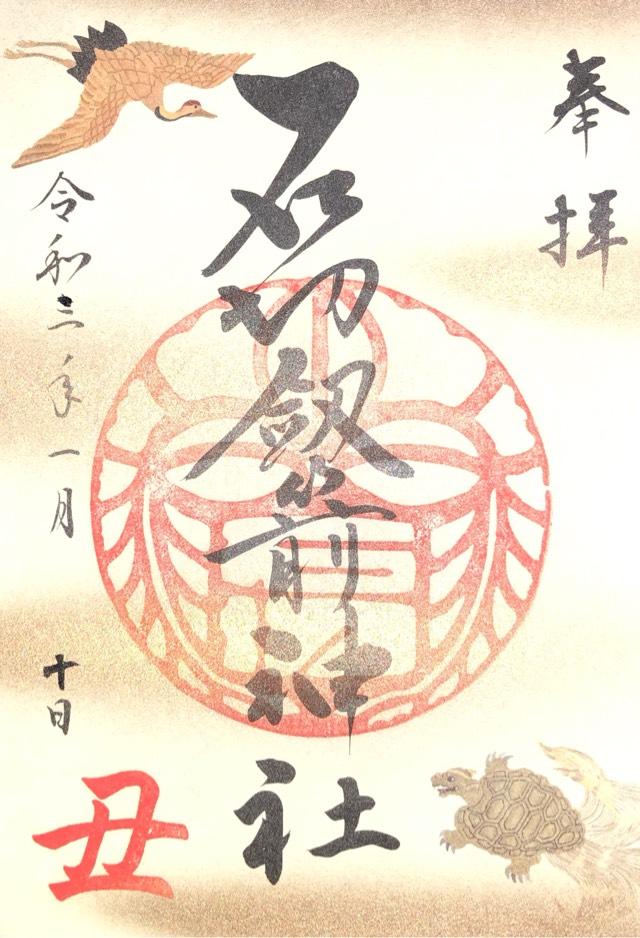 奉拝
石切劔箭神社
令和三年一月十日
丑